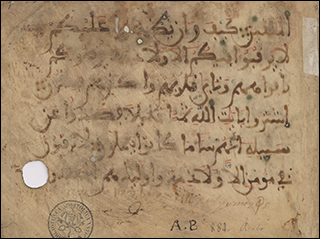 المتقين كيف وان يظهروا عليكم
لا يرقبوا فيكم الا ولا ذمة يرضونكم
بافواههم وتابى قلوبهم واكثرهم فسقون
اشتروا بايات الله ثمنا قليلا فصدوا عن
سبيله انهم ساء ما كانوا يعملون لا يرقبون
في مومن الا ولا ذمة واوليك هم المعتدون
A.P.